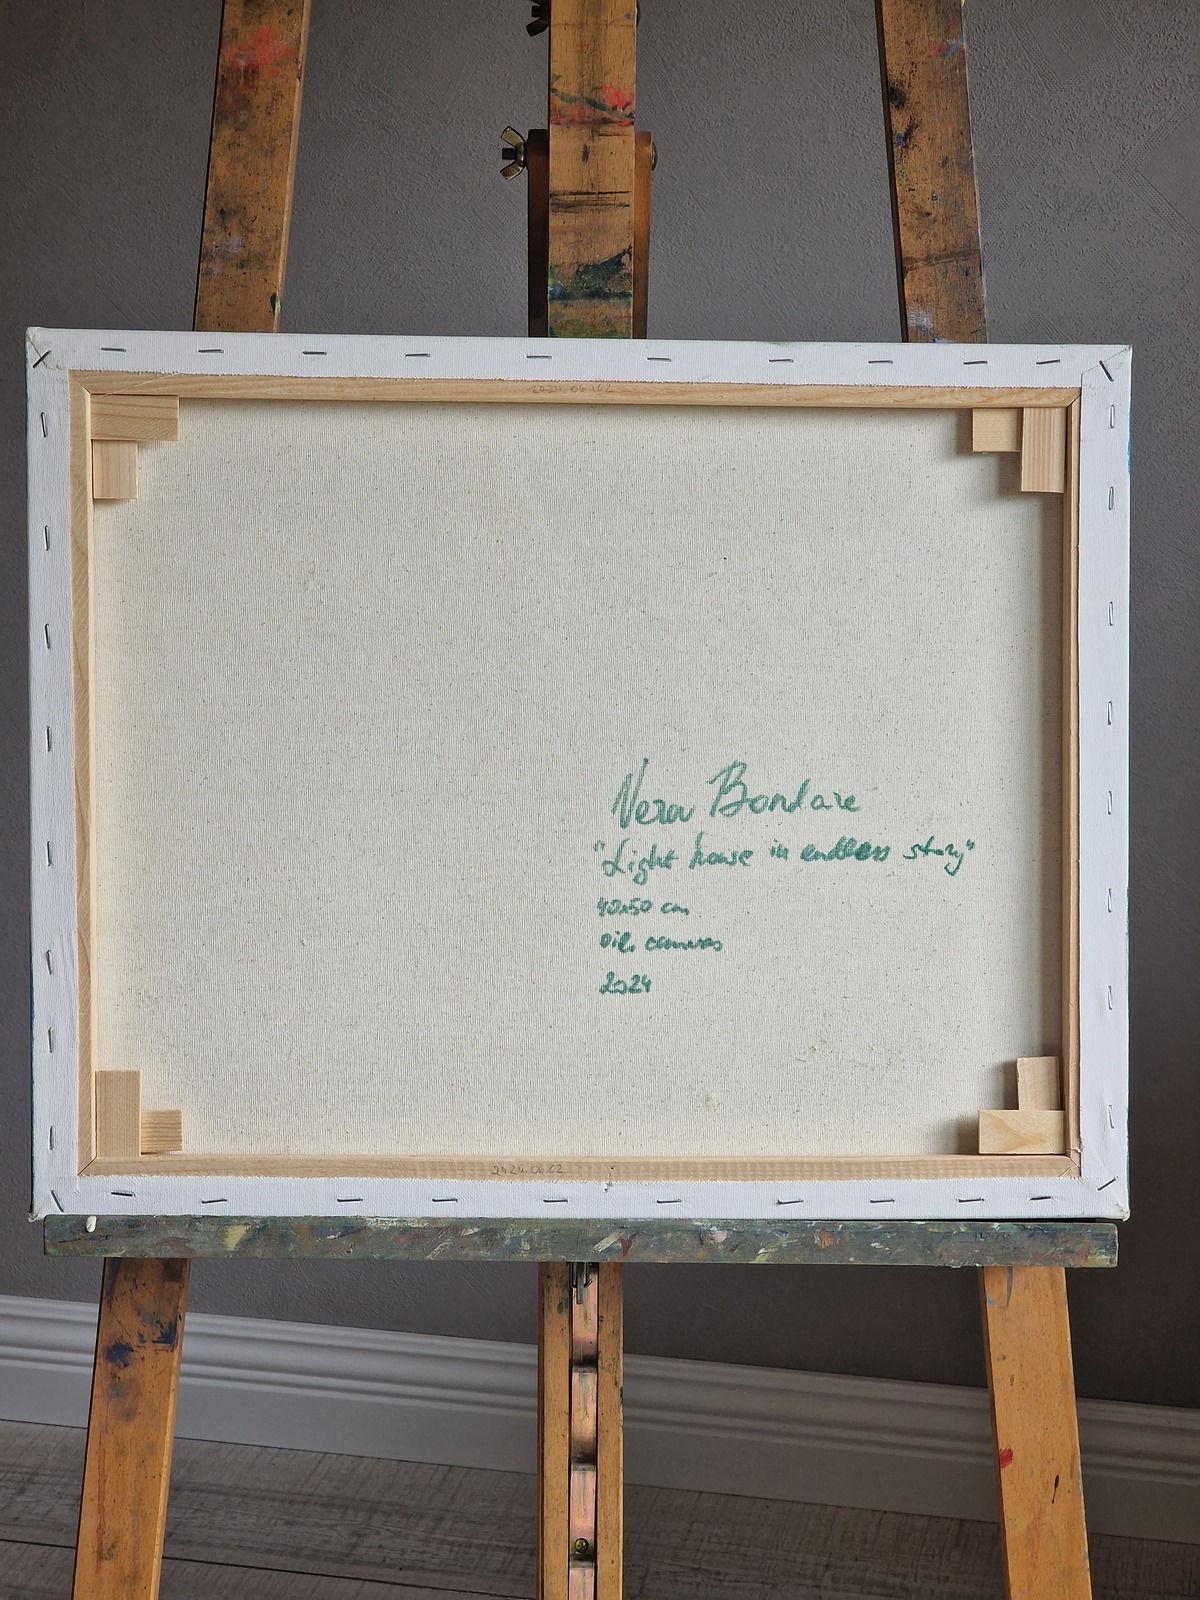 2024.06.02
Vera Bondare
"Light house in endless story"
40x50 cm
oil, canvas
2024
2024.06.02